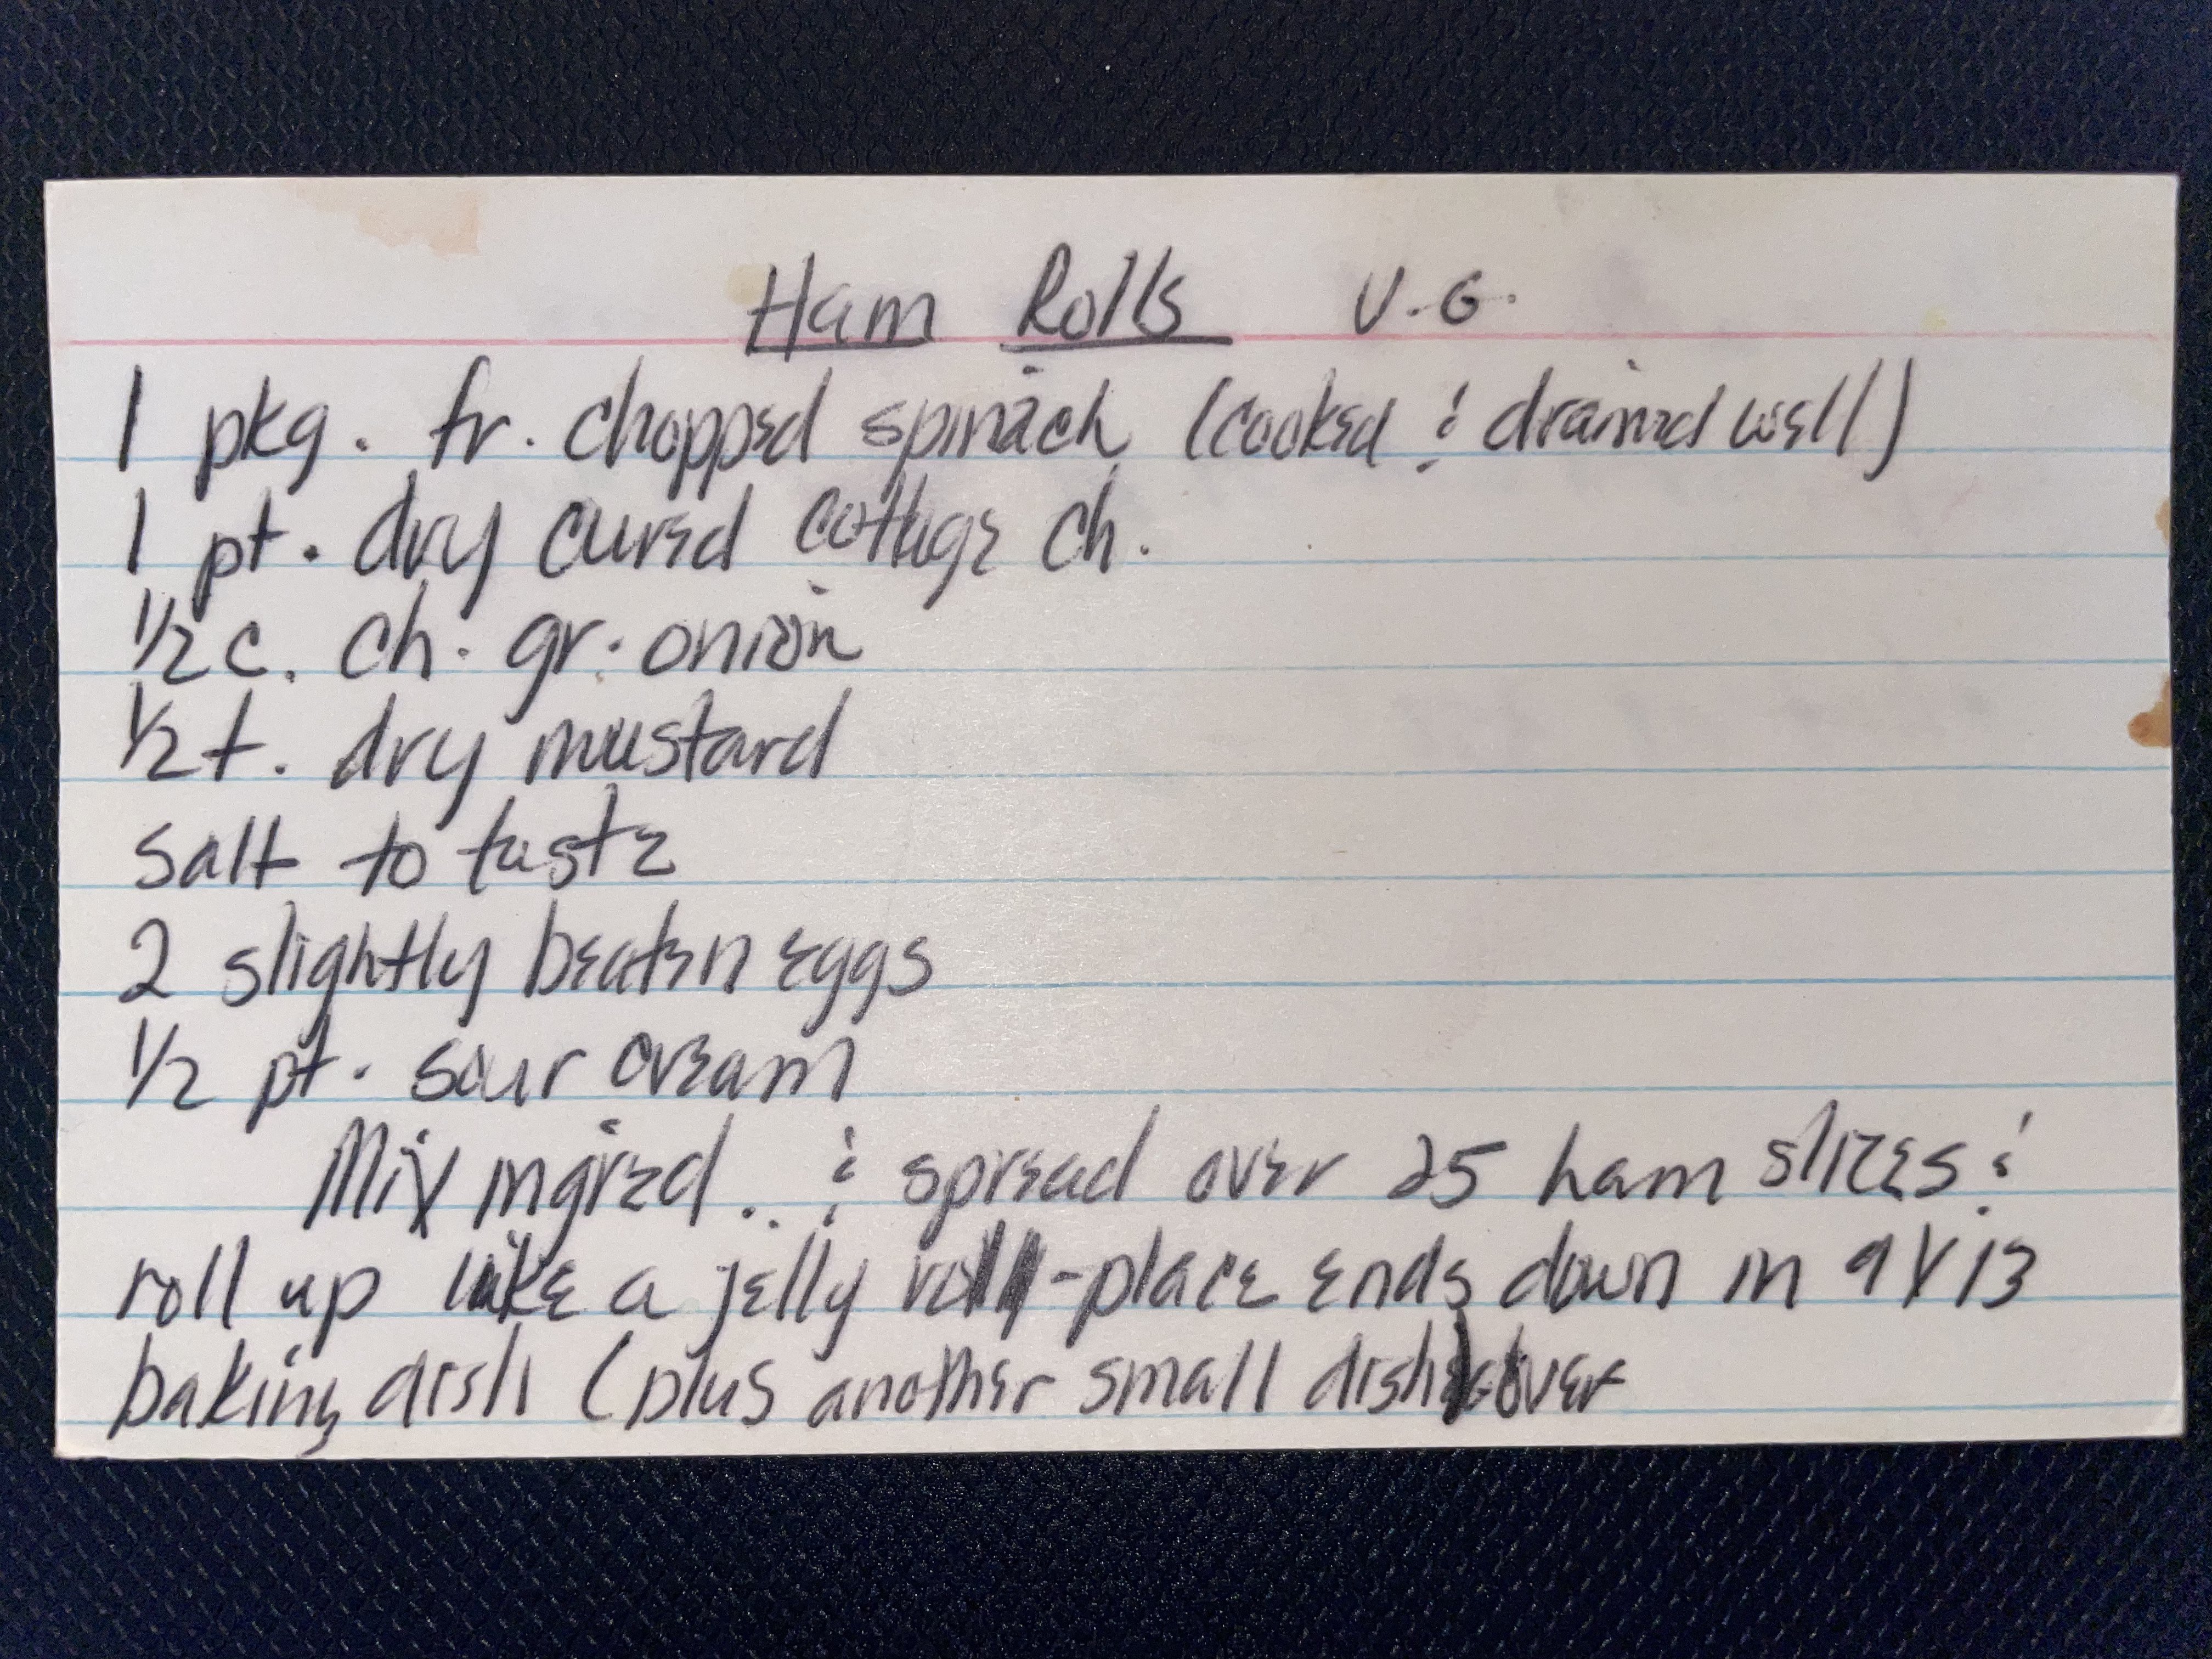 Ham Rolls V.G.
1 pkg. fr. chopped spinach (cooked & drained well)
1 pt. dry cured cottage ch.
1/2 c. ch. gr. onion
1/2 t. dry mustard
salt to taste
2 slightly beaten eggs
1/2 pt. sour cream
Mix ingred.. & spread over 25 ham slices &
roll up like a jelly roll - place ends down in 9X13
baking dish (plus another small dish) over